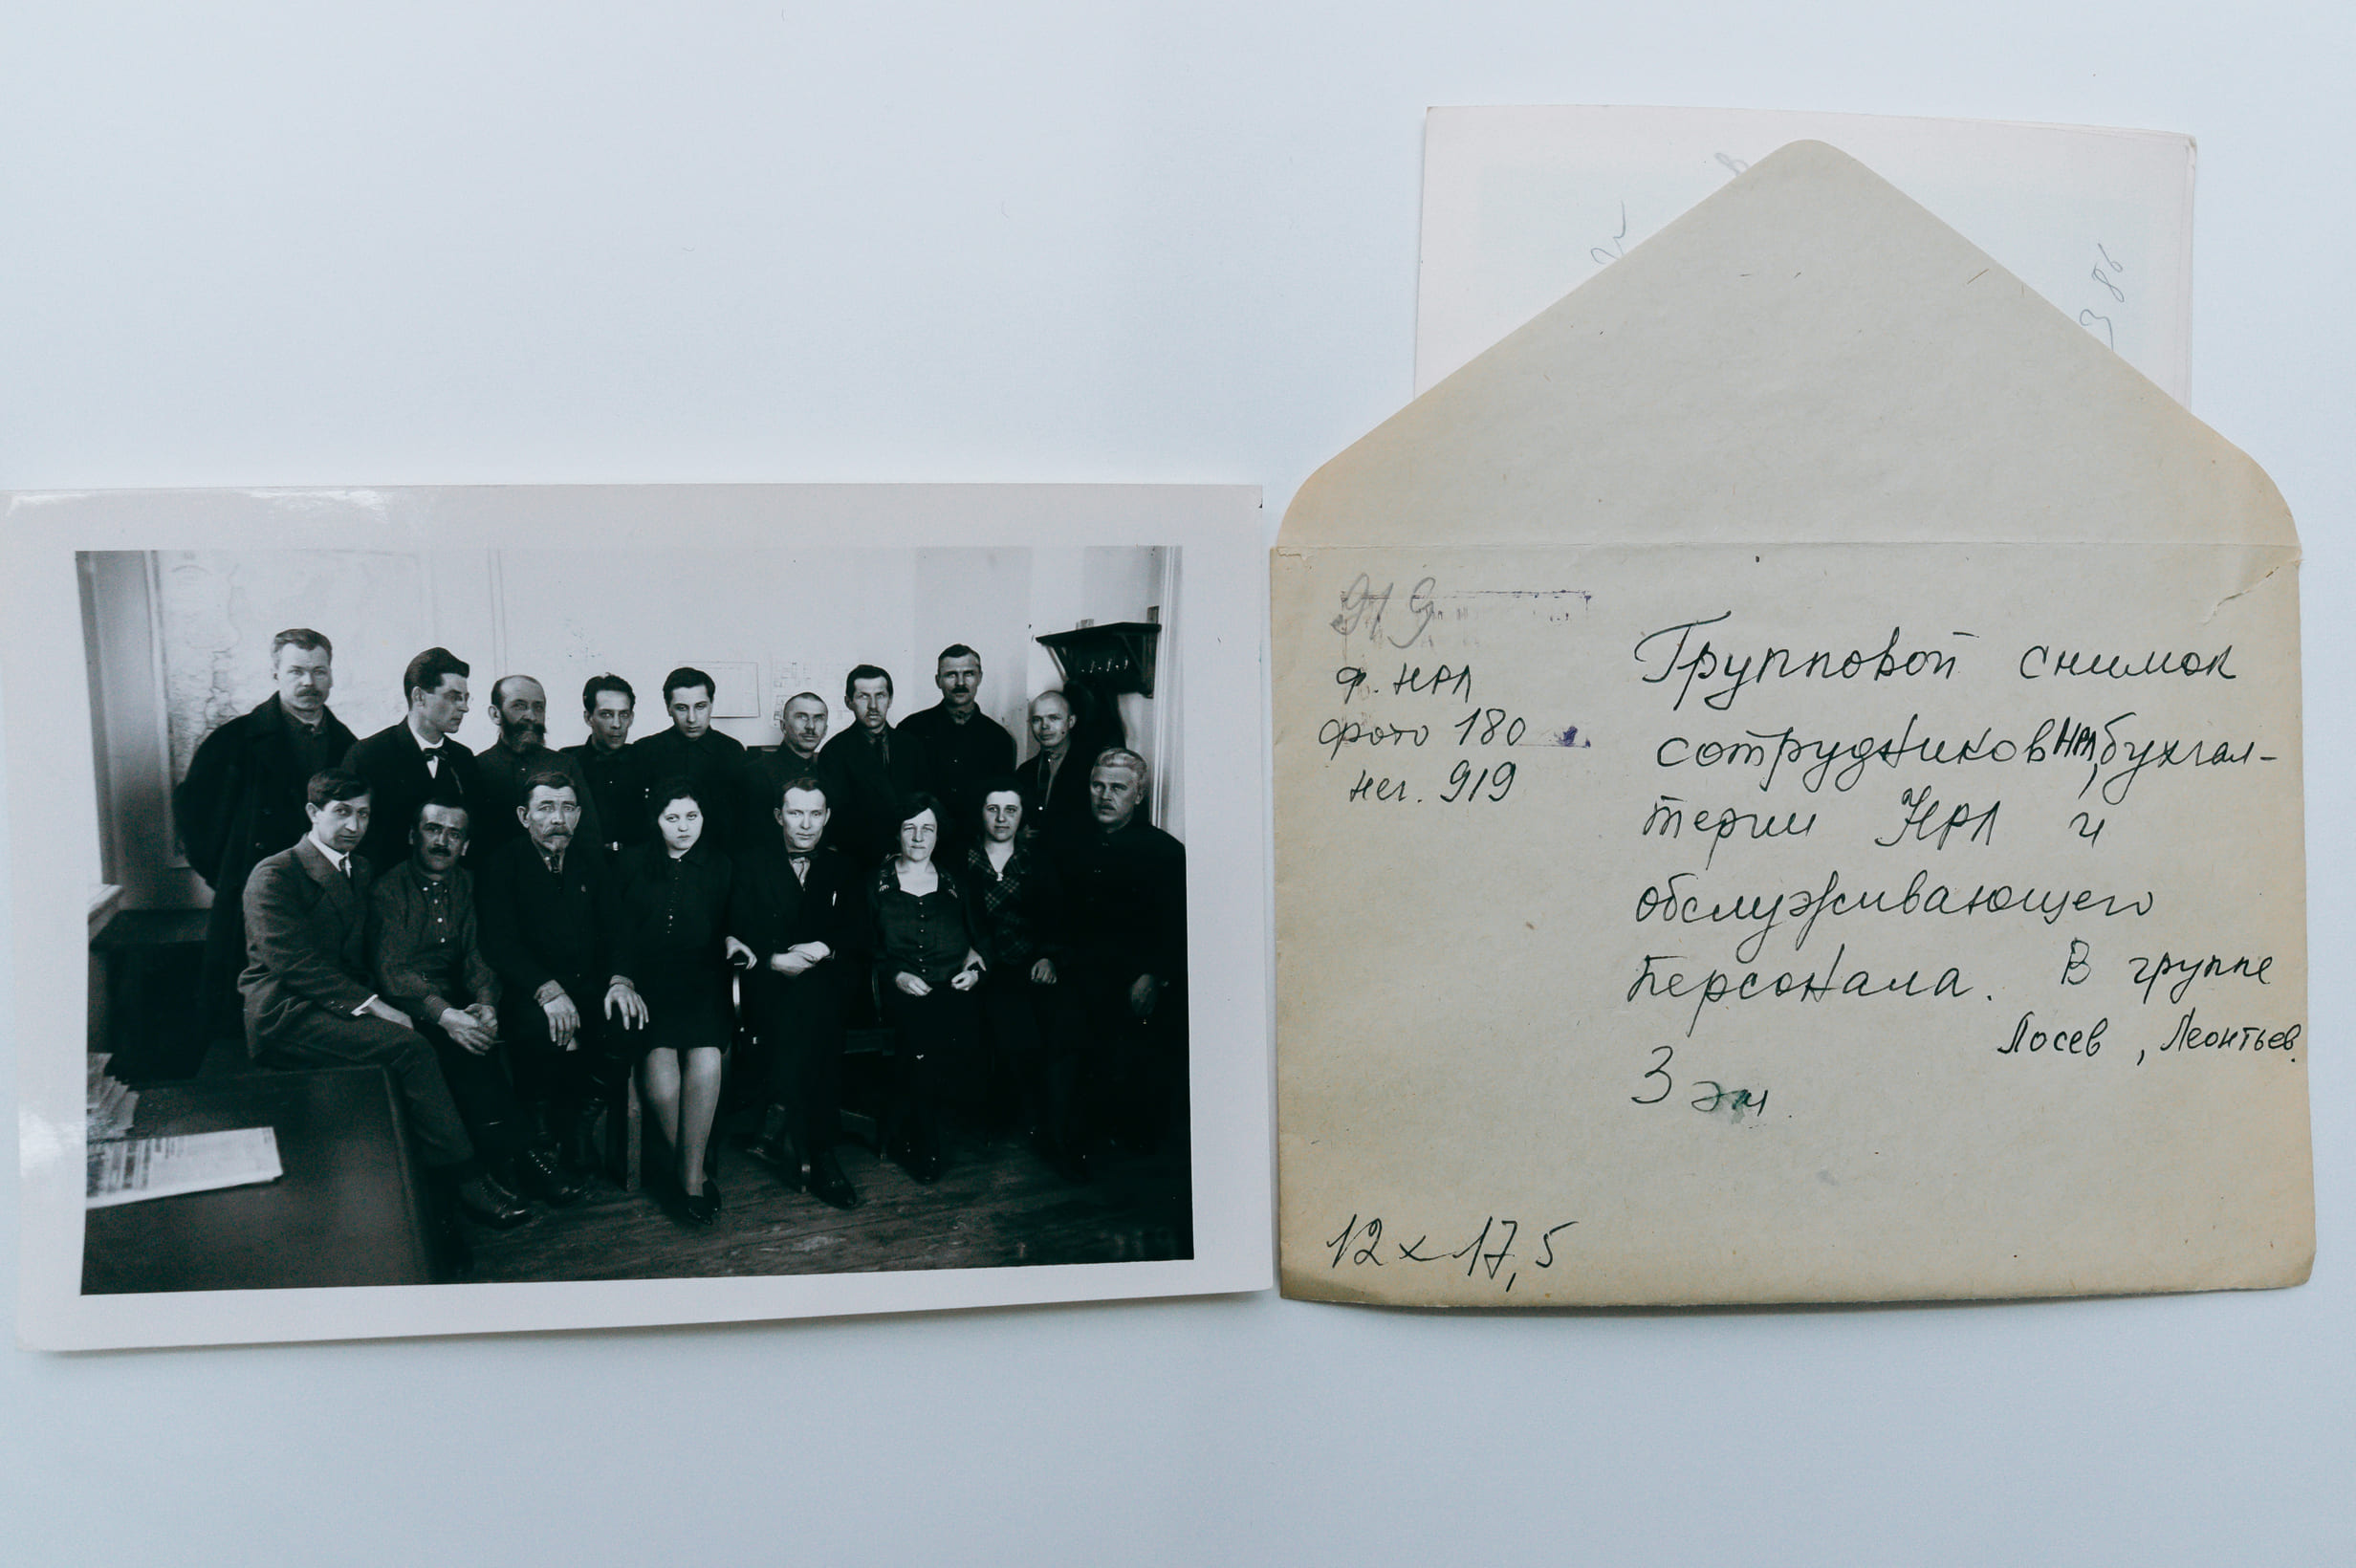 386
919
ф. НРЛ
фото 180
нег. 919
Групповой снимок
сотрудников НРЛ, бухгал-
терии НРЛ и
обслуживающего
персонала. В группе
Лосев, Леонтьев.
3 эк.
12 x 17,5